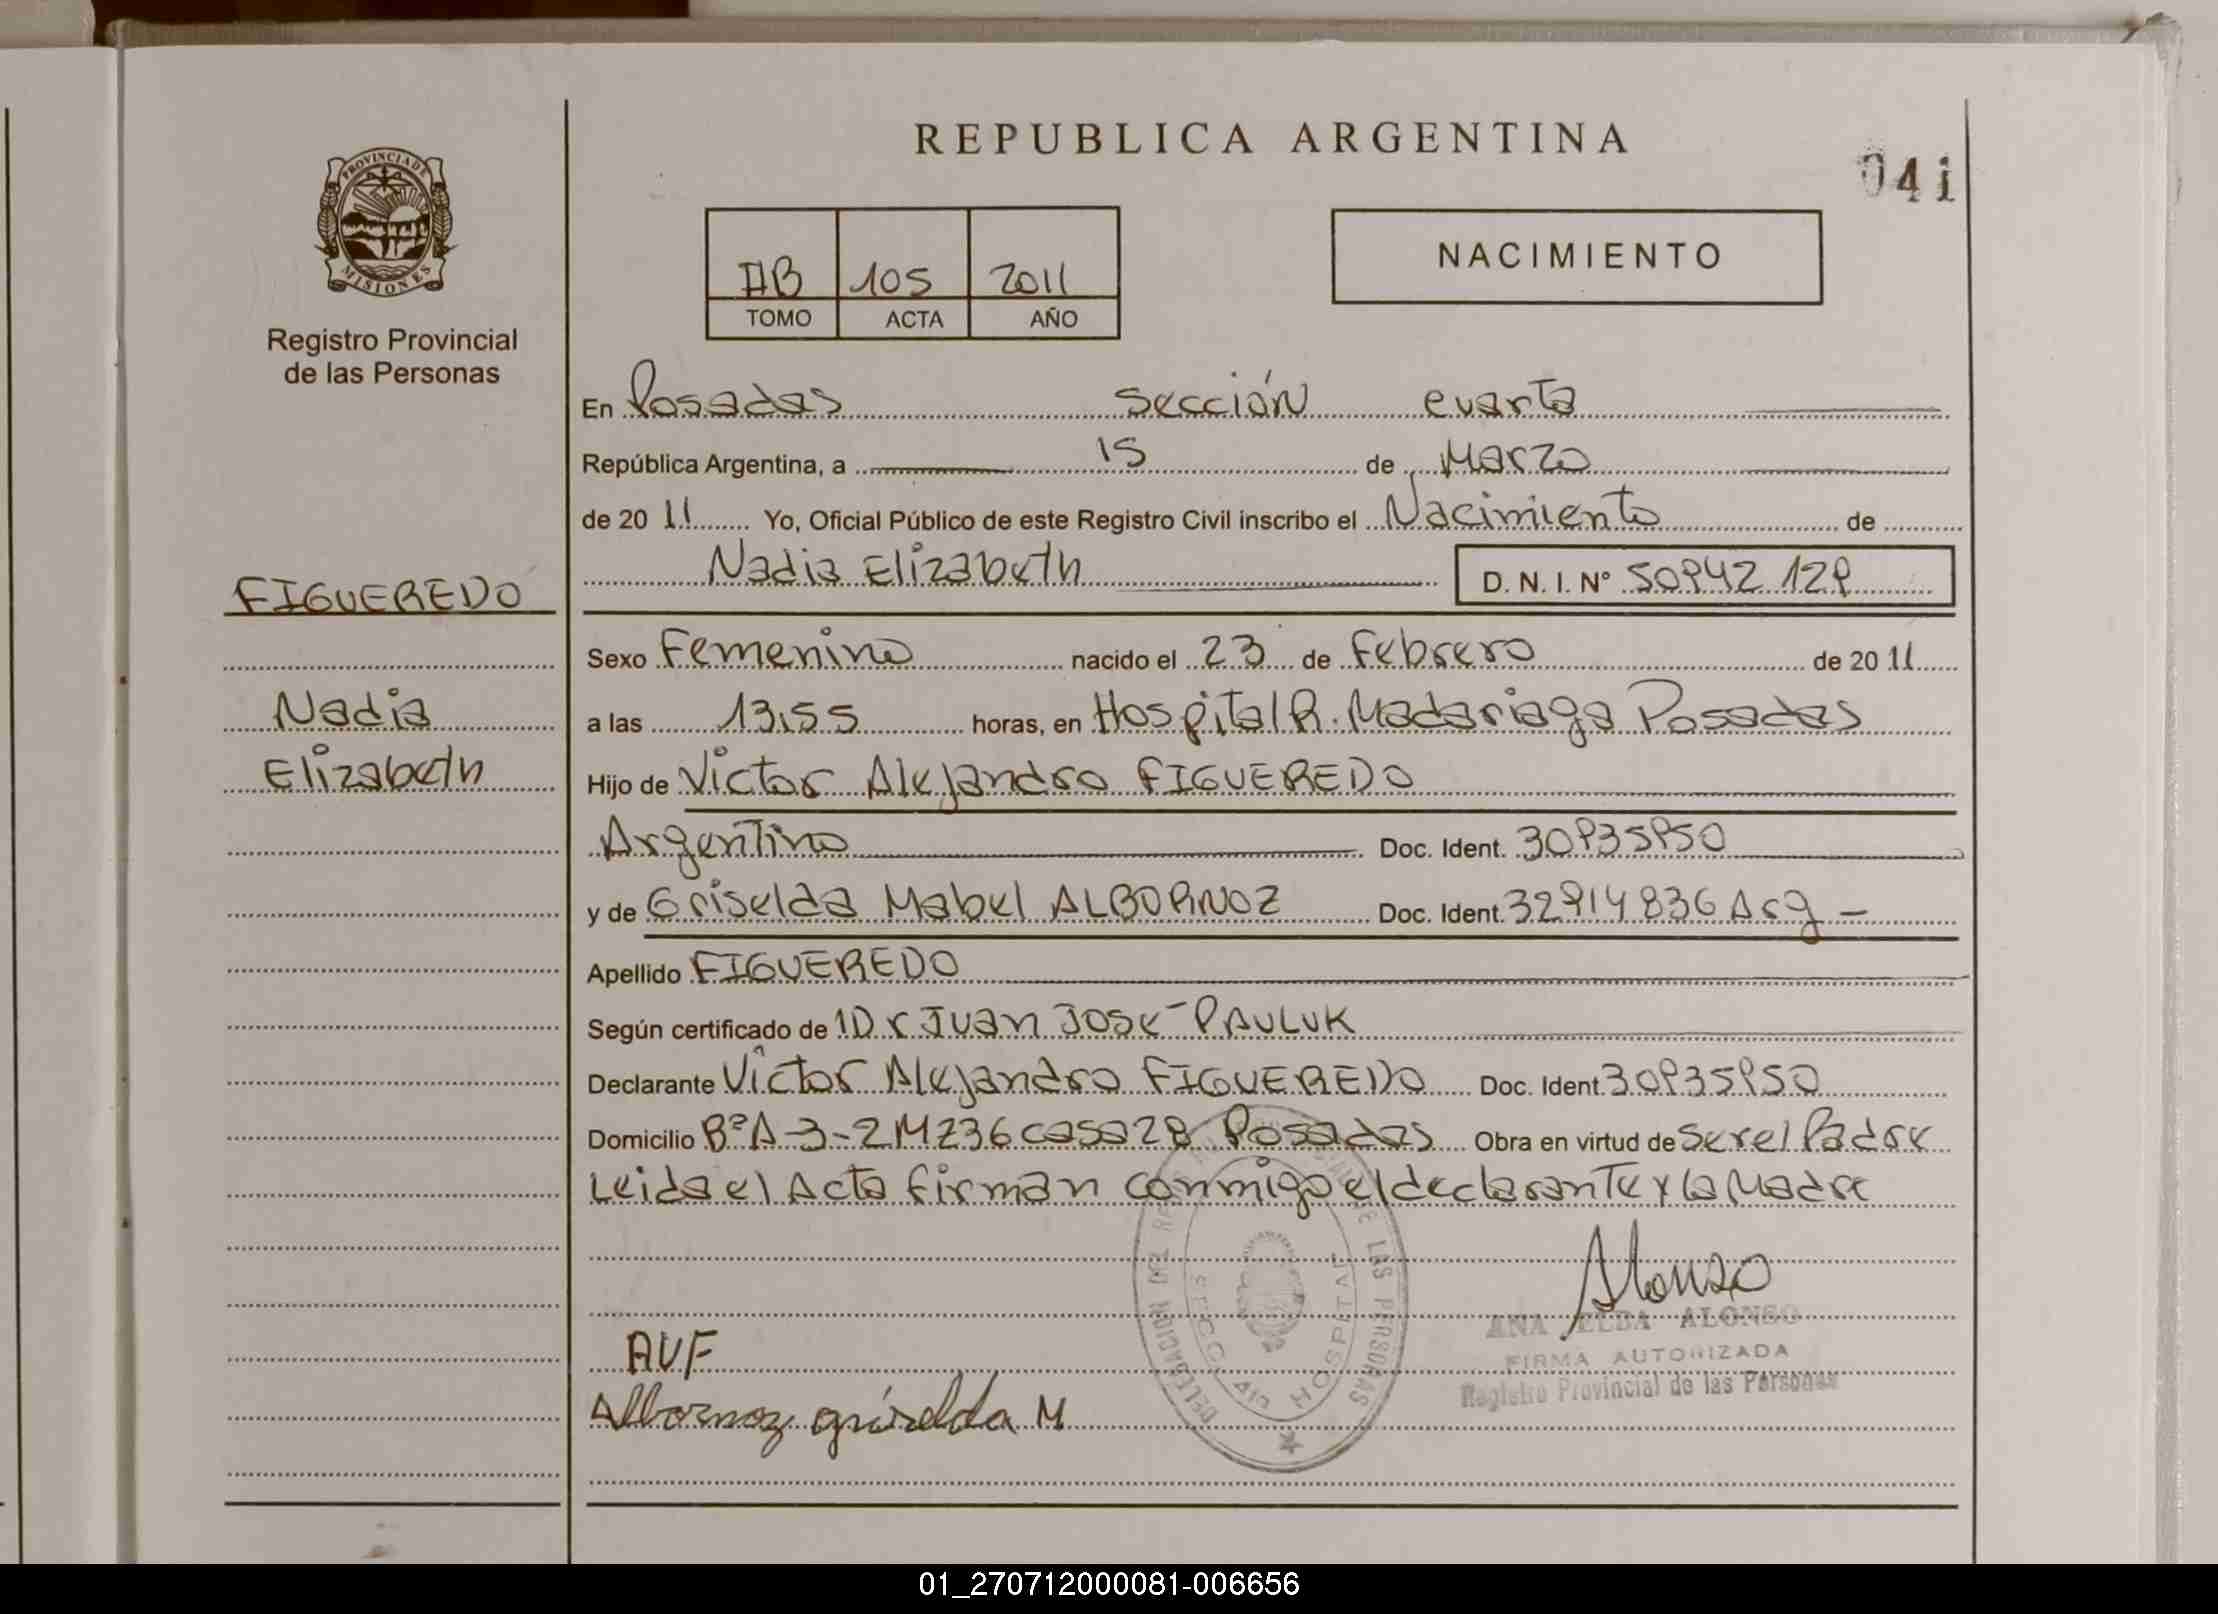 REPUBLICA ARGENTINA
041
PROVINCIA DE
MISIONES
Registro Provincial
de las Personas
AB 105 2011
TOMO ACTA AÑO
NACIMIENTO
En Posadas sección cuarta
República Argentina, a 15 de Marzo
de 2011 Yo, Oficial Público de este Registro Civil inscribo el Nacimiento de
Nadia Elizabeth D. N. I. N° 50942 129
FIGUEREDO
Nadia
Elizabeth
Sexo Femenino nacido el 23 de Febrero de 2011
a las 13,55 horas, en Hospital R. Madariaga Posadas
Hijo de Victor Alejandro FIGUEREDO
Argentino Doc. Ident. 30935950
y de Griselda Mabel ALBORNOZ Doc. Ident. 32914836 Arg -
Apellido FIGUEREDO
Según certificado de 1Dr Juan José PAULUK
Declarante Victor Alejandro FIGUEREDO Doc. Ident 30935950
Domicilio B° A-3-2 MZ36 casa 28 Posadas Obra en virtud de ser el Padre
Leida el Acta firman conmigo el declarante y la Madre
Alonso
ANA ELBA ALONSO
FIRMA AUTORIZADA
Registro Provincial de las Personas
AVF
Albornoz griselda M
DELEGACION DEL DE LAS PERSONAS
HOSPITAL
01_270712000081-006656